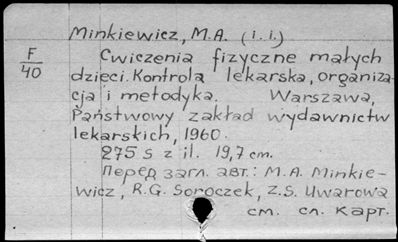 Minkiewicz, M.A. (i. i.)
F
40
Cwiczenia fizyczne małych
dzieci. Kontrola lekarska, organiza-
cja i metodyka. Warszawa,
Państwowy zakład wydawnictw
lekarskich, 1960.
275 s z il. 19,7 cm.
Перед загл. авт.: M.A. Minkie-
wicz, R.G. Soroczek, Z.S. Uwarowa
см. сл. карт.